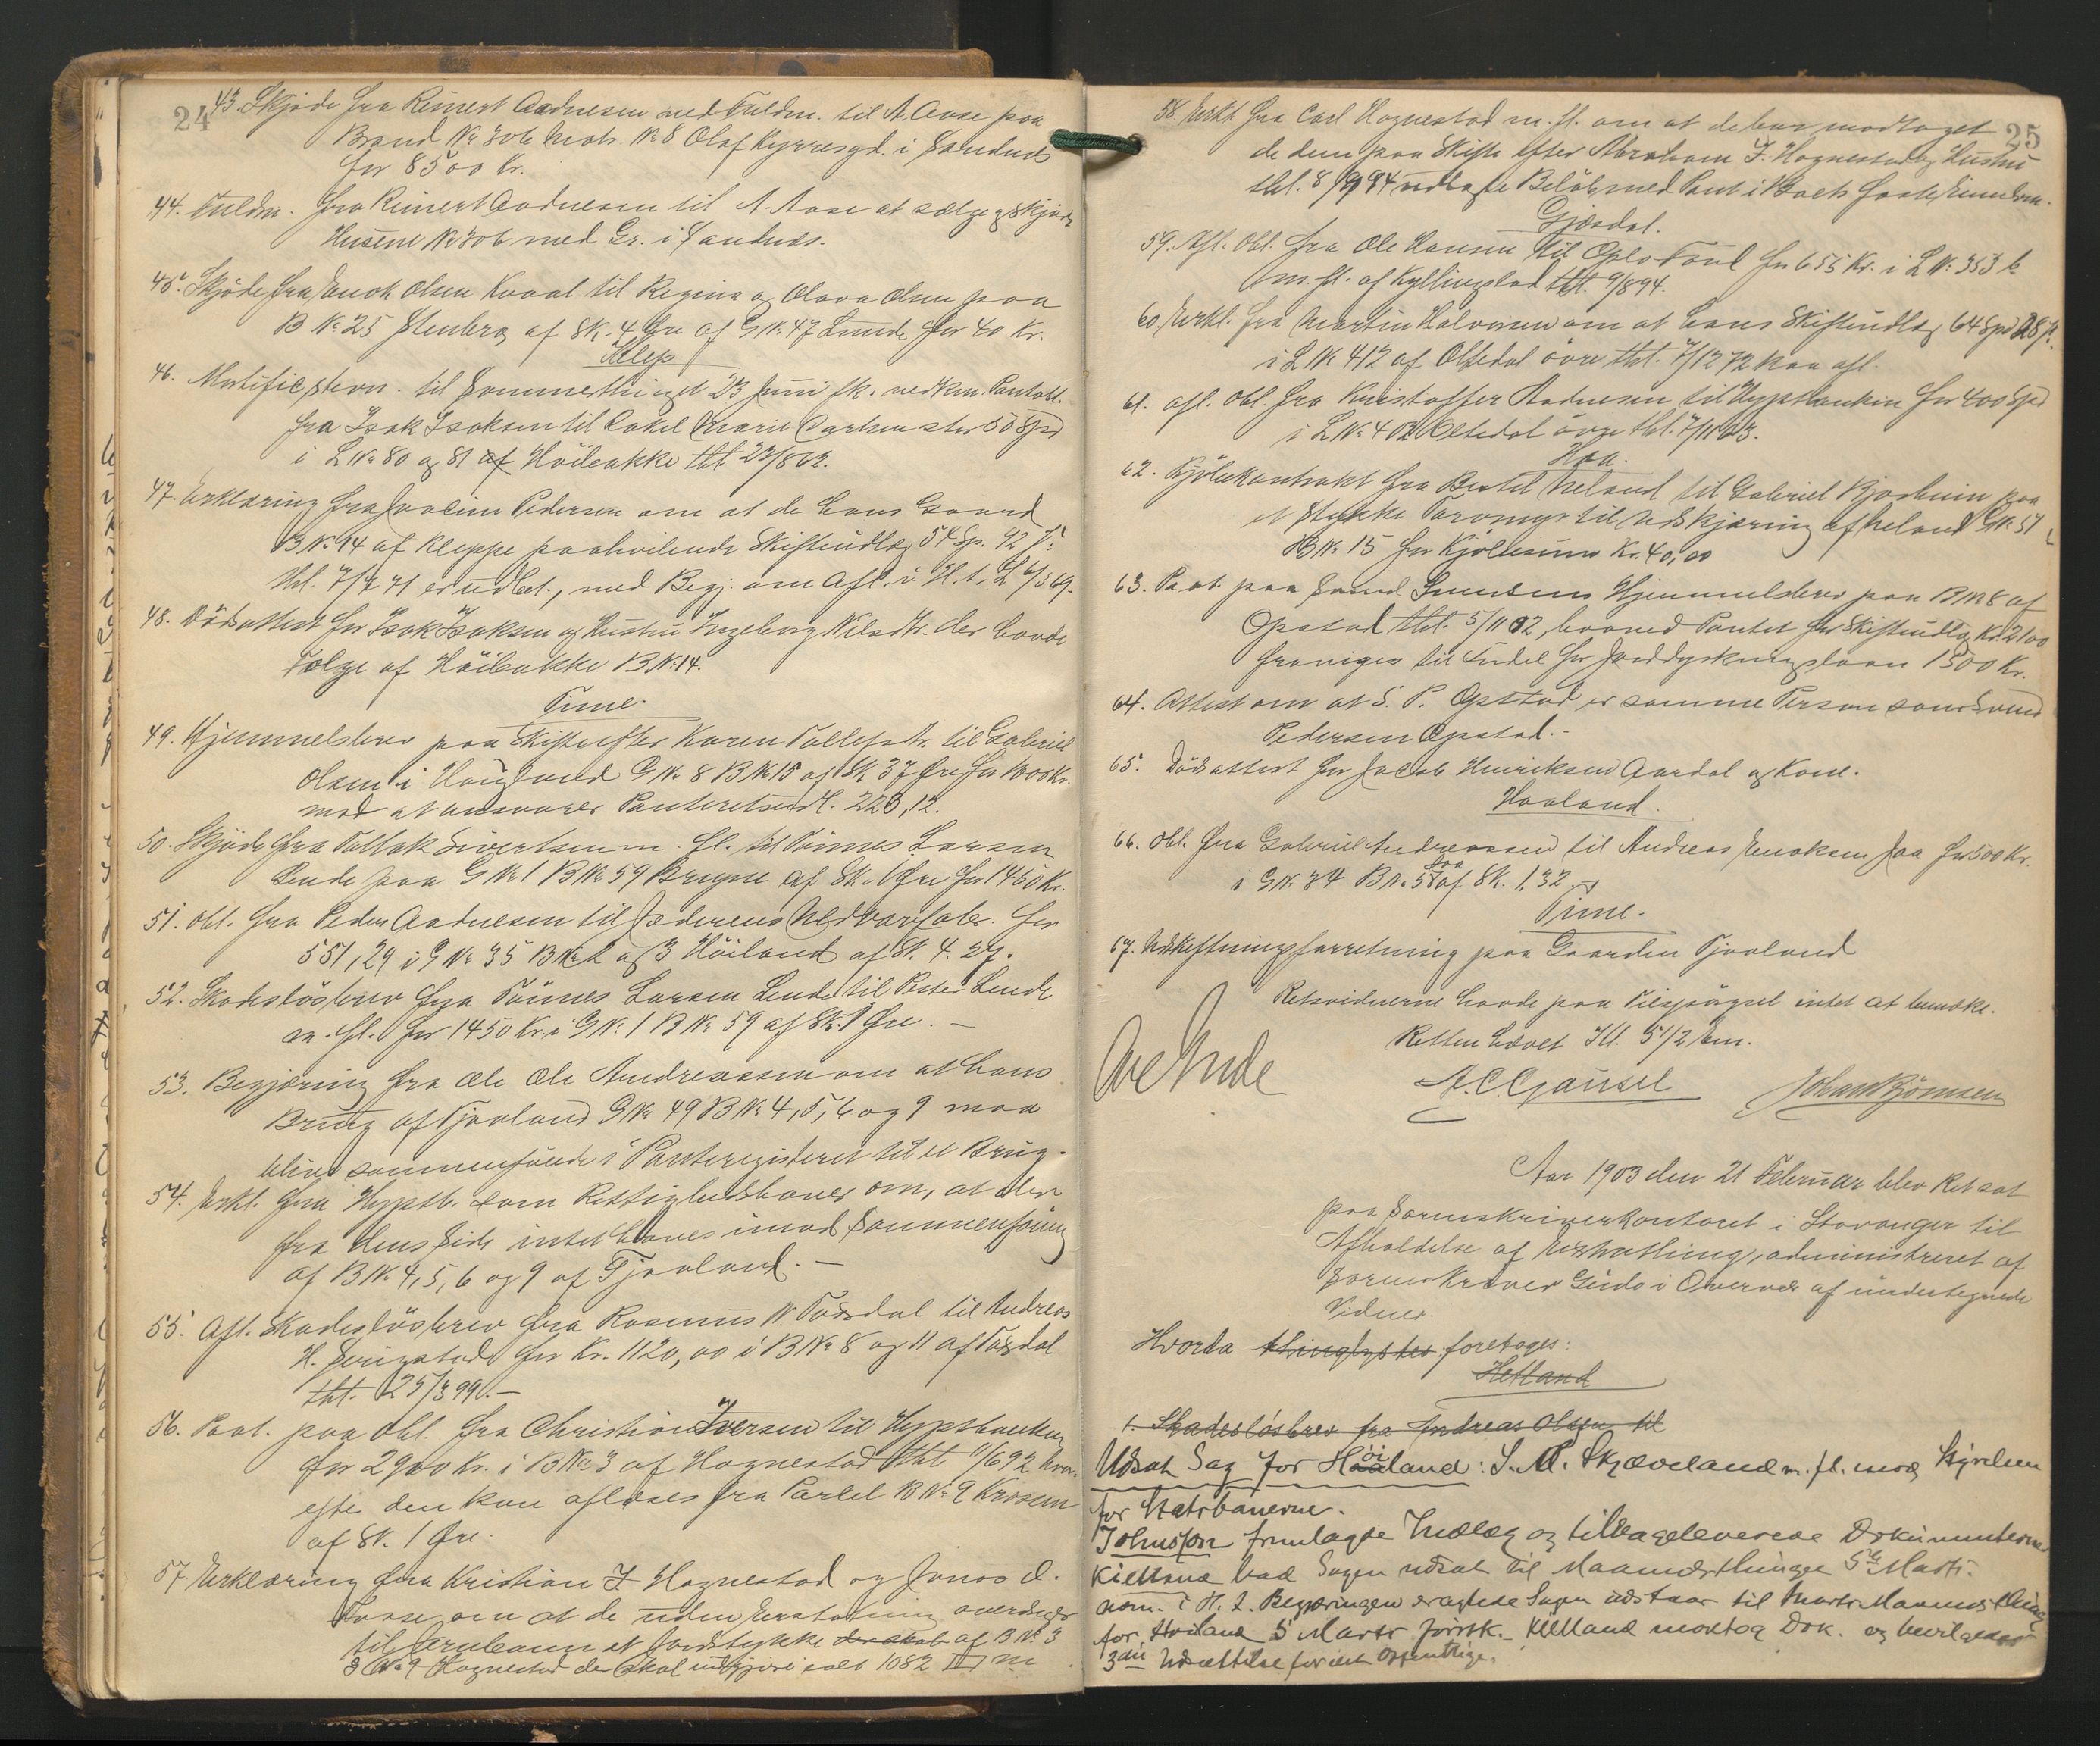 24
43. Skjøde fra Reinert Aadnesen med Fuldm. til A. Aase paa
Brand No 306 Matr. No 8 Olaf Kyrresgd. i Sandnæs
for 8500 Kr.
44. Fuldm. fra Reinert Aadnesen til A. Aase at sælge og skjøde
Husene No 306 med Gr. i Sandnds.
45. Skjøde fra Enok Olsen Kvaal til Regina og Olava Olsen paa
B No 25 Stenberg af Sk. 4 Øre af G No 47 Lunde for 40 Kr.
Klep
46. Mortificstevn. til Sommerthinget 23 Juni fk. vedkm. Pantobl.
fra Isak Isaksen til Rakel Marie Carlsen stor 50 Spd
i L No 80 og 81 af Höibakke tht 23/8 62.
47. Erklæring fra Pauline Pedersen om at de hans Gaard
B No 14 af Kleppe paahvilende Skifteudlæg 54 Sp. 92
thl. 7/7 71 er udbet., med Begj. om Afl. i H. t. L 6/3 69.
48. Dödsattest for Isak Isaksen og Hustru Ingeborg Nilsdtr. der havde
Følge af Höibakke B No 14.
Time.
49. Hjemmelsbrev paa Skifte efter Karen Tollefsdtr. til Gabriel
Olsen i Haugland G No 8 B No 15 af Sk 37 Øre for 1000 Kr.
mod at ansvarer Panteretsudl. 223,12.
50. Skjöde fra Tollak Sivertsen m. fl. til Tönnes Larsen
Lende paa G No 1 B No 59 Bryne af Sk. 1 Øre for 1450 Kr.
51. Obl. fra Peder Aadnesen til Jæderens Uldvarefabr. for
551,29 i G No 35 B No 2 og 3 Höiland af Sk. 4. 27.
52. Skadeslösbrev fra Tönnes Larsen Lende til Peter Lende
m. fl. for 1450 Kr. i G No 1 B No 59 af Sk. 1 Øre. —
53. Begjæring fra Ole Ole Andreassen om at hans
Brug af Tjaaland G No 49 B No 4, 5, 6 og 9 maa
blive sammenföiede i Panteregisteret til et Brug.
54. Erkl. fra Hypotb. som Rettighedshaver om, at der
fra dens Side intet haves imod Sammenföining
af B No 4, 5, 6 og 9 af Tjaaland. —
55. Afl. Skadeslösbrev fra Rasmus N. Taksdal til Andreas
H. Serigstad for Kr. 1120,00 i B No 8 og 11 af Taksdal
tht. 25/3 99. —
56. Paat. paa Obl. fra Christian Iversen til Hypothbanken
for 2900 Kr. i B No 3 af Hognestad tht 11/6 92 hvor-
efter den kan aflæses fra Parcel B No 9 Krossen
af Sk. 1 Øre.
57 Erklæring fra Kristian I Hognestad og Jonas O.
Fosse om at de uden Erstatning overdrager
til Jernbanen et Jordstykke der skal af B No 3
G No 9 Hognestad der skal udgjøre ialt 1082 □ m
25
58. Erkl. fra Carl Hognestad m. fl. om at de har modtaget
de dem paa Skifte efter Abraham I. Hognestad og Hustru
thl. 8/9 94 udlagte Beløb med Pant i Boets faste Eiendom.
Gjæsdal.
59. Afl. Obl. fra Ole Hansen til Oplo Fond for 655 Kr. i L No 353 b
m. fl. af Kyllingstad tht. 9/8 94.
60. Erkl. fra Martin Halvorsen om at hans Skifteudlæg 64 Spd
i L No 412 af Oltedal övre tht. 7/12 72 kan afl.
61. Afl. Obl. fra Kristoffer Aadnesen til Hypthbanken for 400 Spd
i L No 402 Oltedal övre thl. 7/11 63.
Haa.
62. Kjöbekontrakt fra Bertel Neland til Gabriel Bjorheim paa
et Stykke Torvmyr til Udskjæring af Neland G No 51
B No 15 for Kjöbesum Kr. 40,00
63. Paat. paa Svend Svendsens Hjemmelsbrev paa B No 8 af
Opstad tht. 5/11 02, hvorved Pantet for Skifteudlæg Kr. 2100
fraviges til Fordel for Jorddyrkningslaan 1500 Kr.
64. Attest om at S. P. Opstad er samme Person som Svend
Pedersen Opstad. -
65. Dödsattest for Jacob Henriksen Aardal og Kone.
Haaland.
66. Obl. fra Gabriel Andreassen til Andreas Enoksen Jaa for 500 Kr.
i G No 34 B No 5 Jaa af Sk. 1,32
Time.
67. Udskiftningsforretning paa Gaarden Tjaaland
Retsvidnerne havde paa Tilspörgsel intet at bemærke.
Retten hævet Kl. 5 1/2 Em.
A. C. Gausel Johan Björnsen
Aar 1903 den 21 Februar blev Ret sat
paa Sorenskriverkontoret i Stavanger til
Afholdelse af Extrathing, administreret af
Sorenskriver Gude i Overvær af undertegnede
Vidner.
Hvorda thinglystes foretoges:
Hetland
1. Skadeslösbrev fra Andreas Olsen til
Udsat Sag for Höiland: S. M. Skjæveland m. fl. mod Styrelsen
for Statsbanerne.
Johnsson fremlagde Indlæg og tilbageleverede Dokumenterne
Kielland bad Sagen udsat til Maanedsthinget 5te Marts.
aom. i H. t. Begjæringen eragtede Sagen udstaar til Marts Maaneds Thing
for Höiland 5 Marts förstk. Kielland modtog Dok. og bevilgedes
3die Udsættelse for det Offentlige.